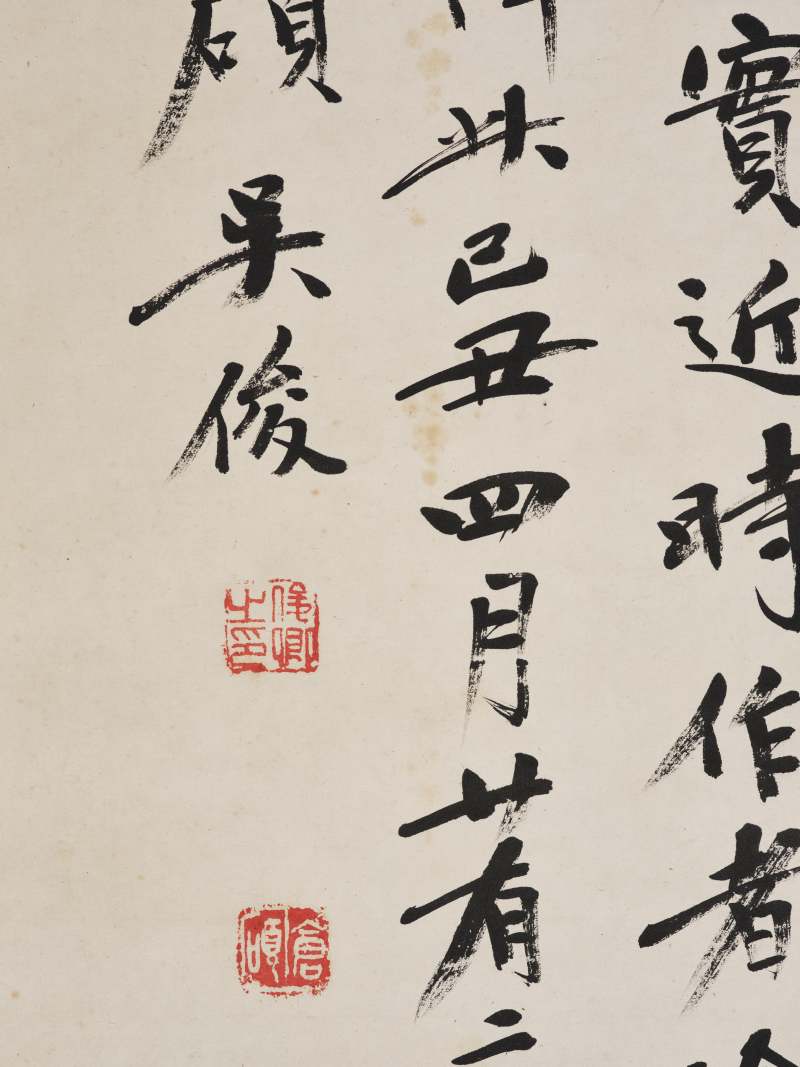 實近時作者
此己丑四月廿有二
碩吳俊
俊卿之印
倉碩